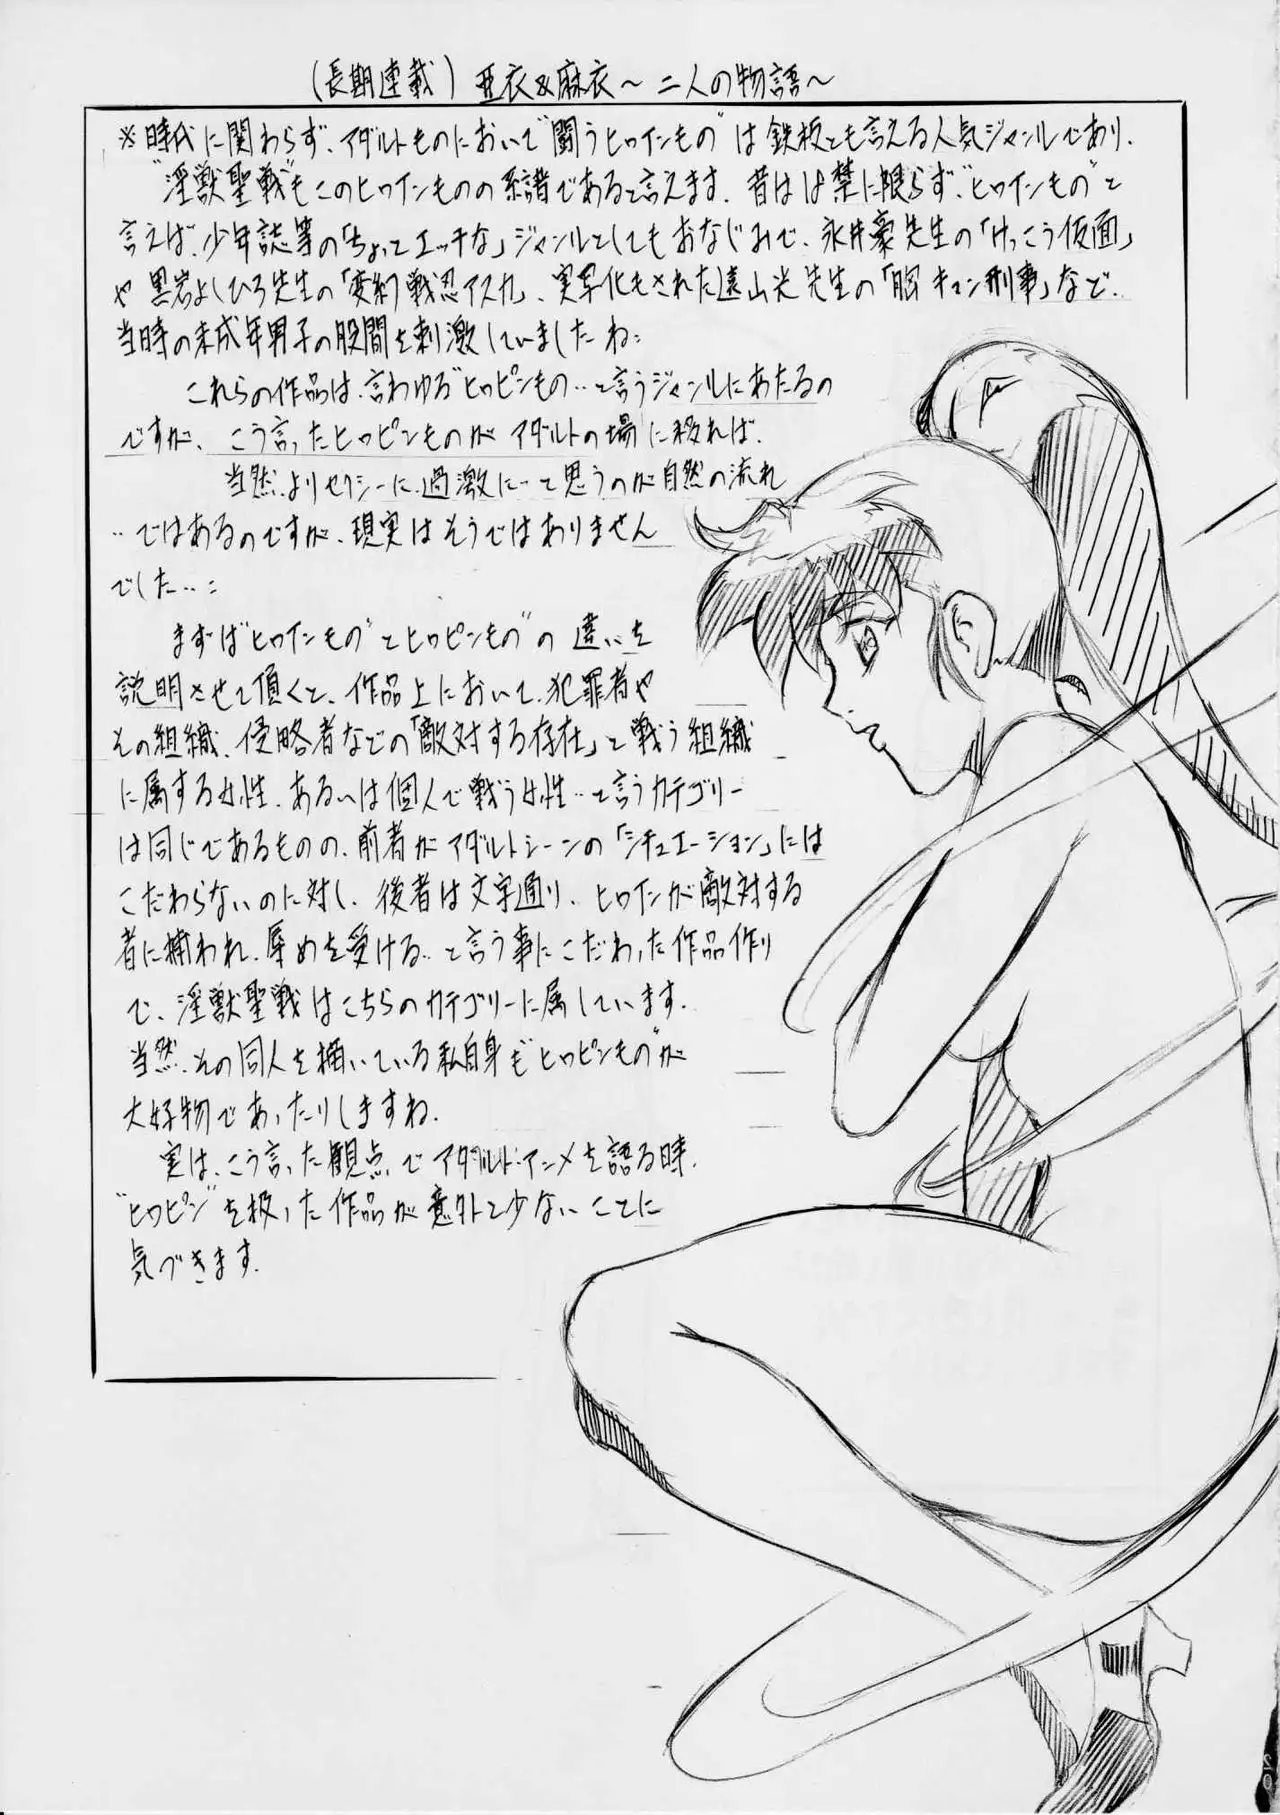 (長期連載) 亜衣&麻衣〜二人の物語〜
※時代に関わらず、アダルトものにおいて"闘うヒロインもの"は鉄板とも言える人気ジャンルであり、
"淫獣聖戦"もこのヒロインものの系譜であると言えます。昔は18禁に限らず、"ヒロインもの"と
言えば、少年誌等の「ちょっとエッチな」ジャンルとしてもおなじみで、永井豪先生の「けっこう仮面」
や黒岩よしひろ先生の「変幻戦忍アスカ」、実写化もされた遠山光先生の「胸キュン刑事」など‥
当時の未成年男子の股間を刺激していましたね:
これらの作品は、言わゆる"ヒロピンもの‥と言うジャンルにあたるの
ですが、こう言ったヒロピンものがアダルトの場に移れば、
当然、よりセクシーに、過激に‥と思うのが自然の流れ
‥ではあるのですが、現実はそうではありません
でした‥:
まずは"ヒロインもの"とヒロピンもの"の違いを
説明させて頂くと、作品上において、犯罪者や
その組織、侵略者などの「敵対する存在」と戦う組織
に属する女性、あるいは個人で戦う女性‥と言うカテゴリー
は同じであるものの、前者がアダルトシーンの「シチュエーション」には
こだわらないのに対し、後者は文字通り、ヒロインが敵対する
者に捕われ、辱めを受ける‥と言う事にこだわった作品作り
で、淫獣聖戦はこちらのカテゴリーに属しています。
当然、その同人を描いている私自身も"ヒロピンもの"が
大好物であったりしますね。
実は、こう言った観点でアダルト・アニメを語る時、
"ヒロピン"を扱った作品が意外と少ないことに
気づきます。